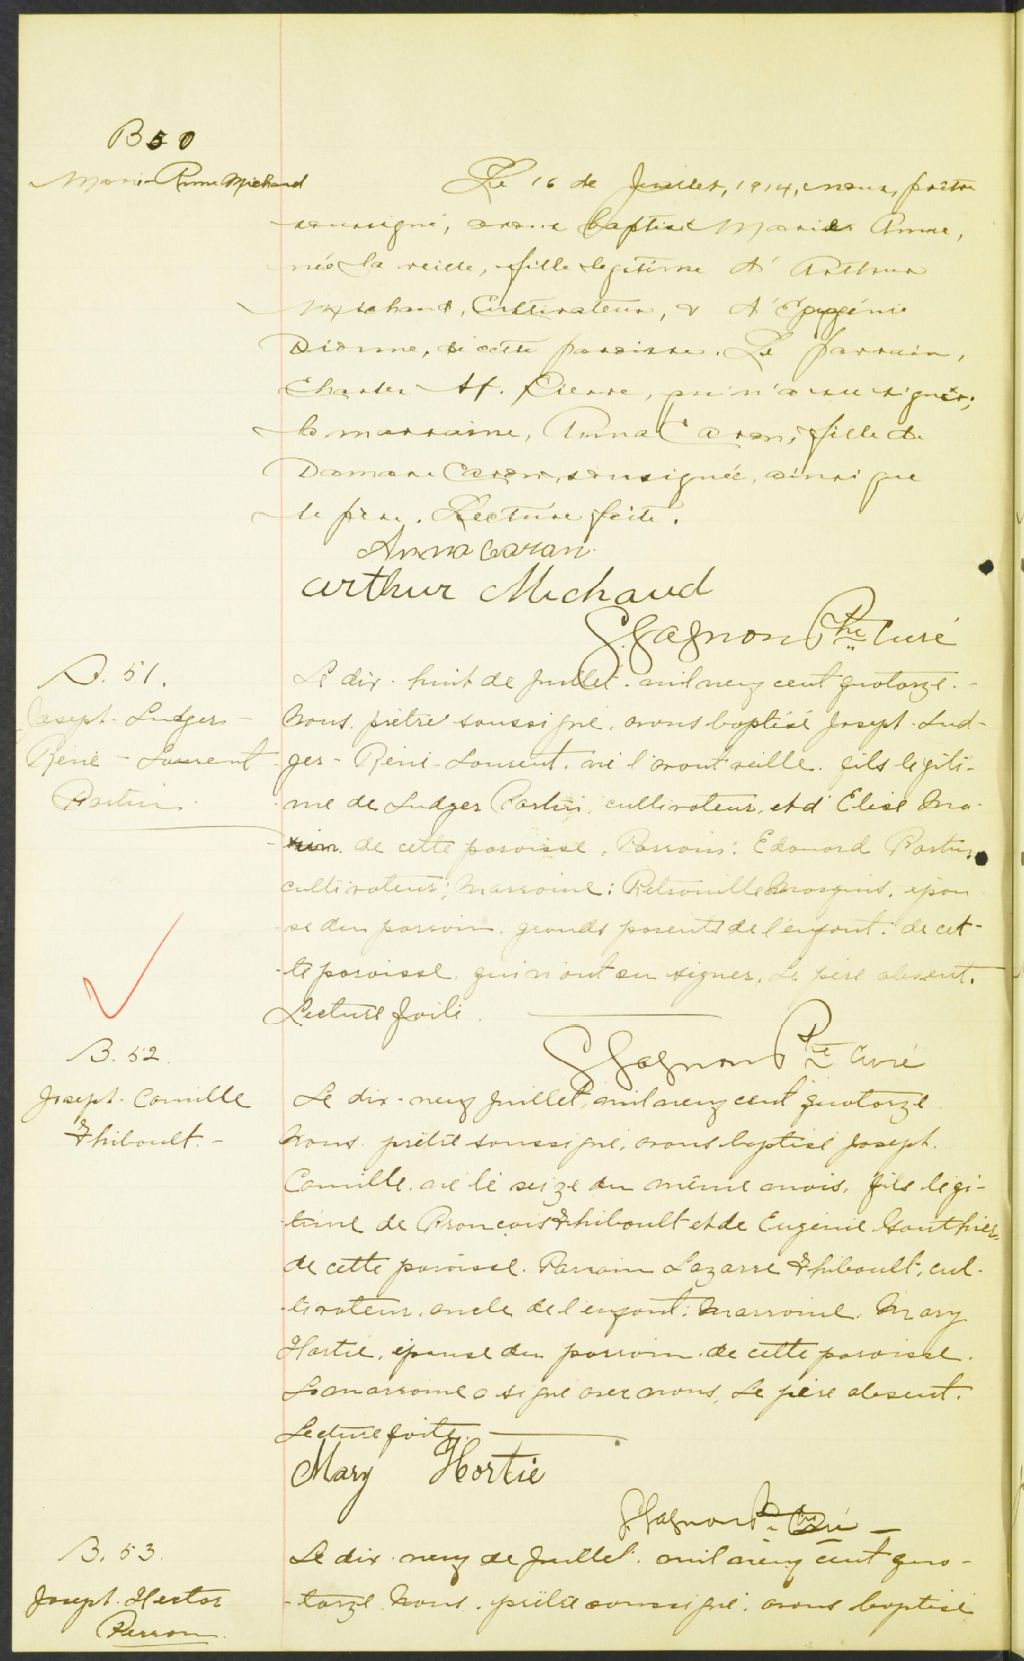 B 50
Marie Anne Michaud
Le 16 de Juillet, 1914, nous, prêtre
soussigné, avons baptisé Marie Anne,
née la veille, fille légitime d'Arthur
Michaud, Cultivateur, & d'
Dionne, de cette paroisse. Le parrain,
Charles St. Pierre, qui n'a su signer;
la marraine, Anna Caron, fille de
Damase Caron, soussignée, ainsi que
le père. Lecture faite.
Anna Caron
Arthur Michaud
G. Gagnon Ptre Curé
B. 51.
Joseph-Ludger-
René-Laurent
Le dix-huit de Juillet mil neuf cent quatorze.
Nous, prêtre soussigné, avons baptisé Joseph-Lud-
ger-René-Laurent, né l'avant veille, fils légiti-
me de Ludger, cultivateur, et d'Elise Mo-
rin de cette paroisse. Parrain: Edouard
cultivateur; Marraine: épou-
se du parrain, grands parents de l'enfant, de cet-
te paroisse, qui n'ont su signer, Le père absent.
Lecture faite.
G. Gagnon Ptre Curé
B. 52
Joseph-Camille
Thiboult-
Le dix-neuf Juillet, mil neuf cent quatorze
Nous, prêtre soussigné, avons baptisé Joseph
Camille, né le seize du même mois, fils légi-
time de François Thiboult et de Eugénie Gauthier,
de cette paroisse. Parrain Lazarre Thiboult, cul-
tivateur, oncle de l'enfant; Marraine, Mary
Hortie, épouse du parrain, de cette paroisse.
La marraine a signé avec nous, Le père absent.
Lecture faite.
Mary Hortie
G. Gagnon Ptre Curé
B. 53
Joseph-Hector
Perron
Le dix-neuf de Juillet, mil neuf cent qua-
torze, Nous, prêtre soussigné, avons baptisé